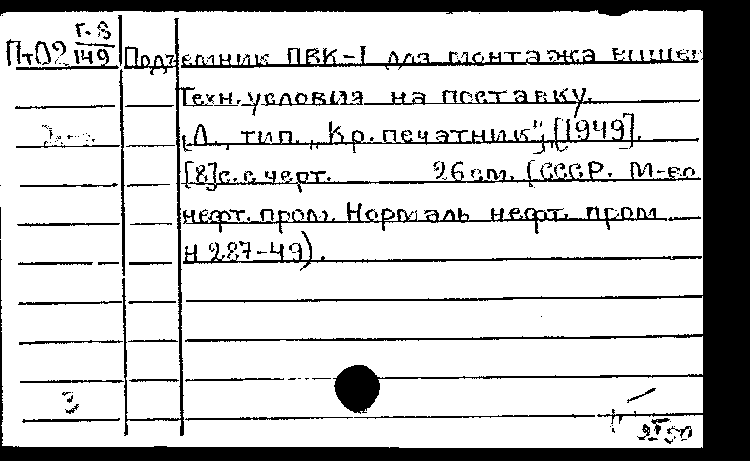 Г-8
ПтО2 149 Подъемник ПВК-I для монтажа вышек
Техн. условия на поставку.
Л., тип. „Кр. печатник", [1949].
[8]с. с черт. 26 см. (СССР. М-во
нефт. пром. Нормаль нефт. пром
Н 287-49).
3
50